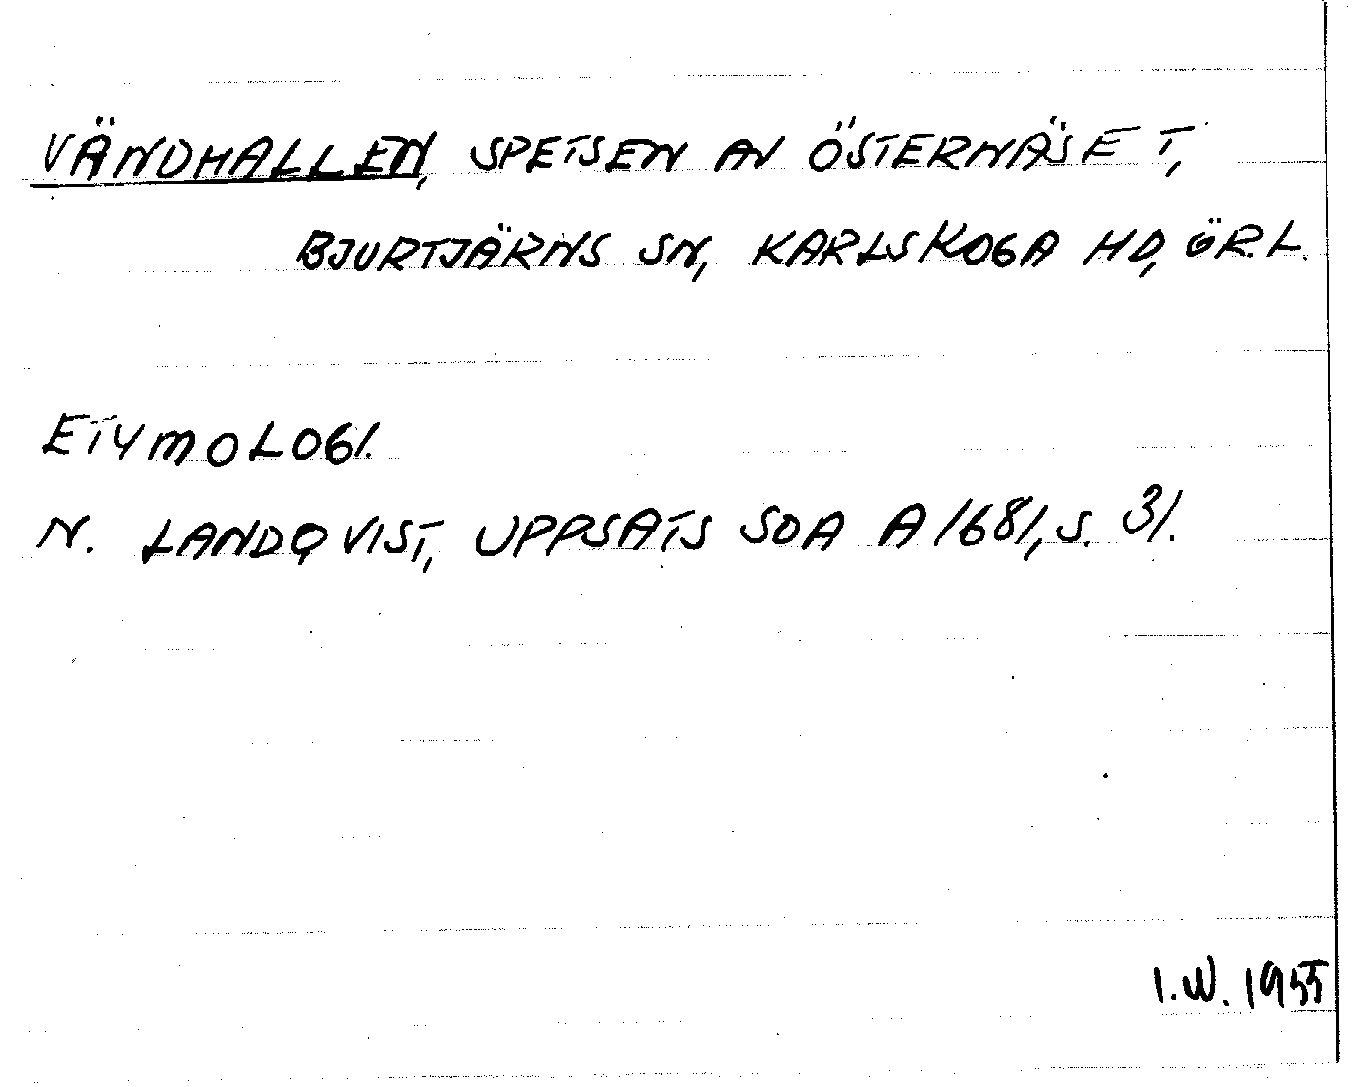 VÄNDHALLEN, SPETSEN AV ÖSTERNÄSET,
BJURTJÄRNS SN, KARLSKOGA HD, ÖR.L.
ETYMOLOGI.
N. LANDQVIST, UPPSATS SOA A 1681, S. 31.
I.W. 1955